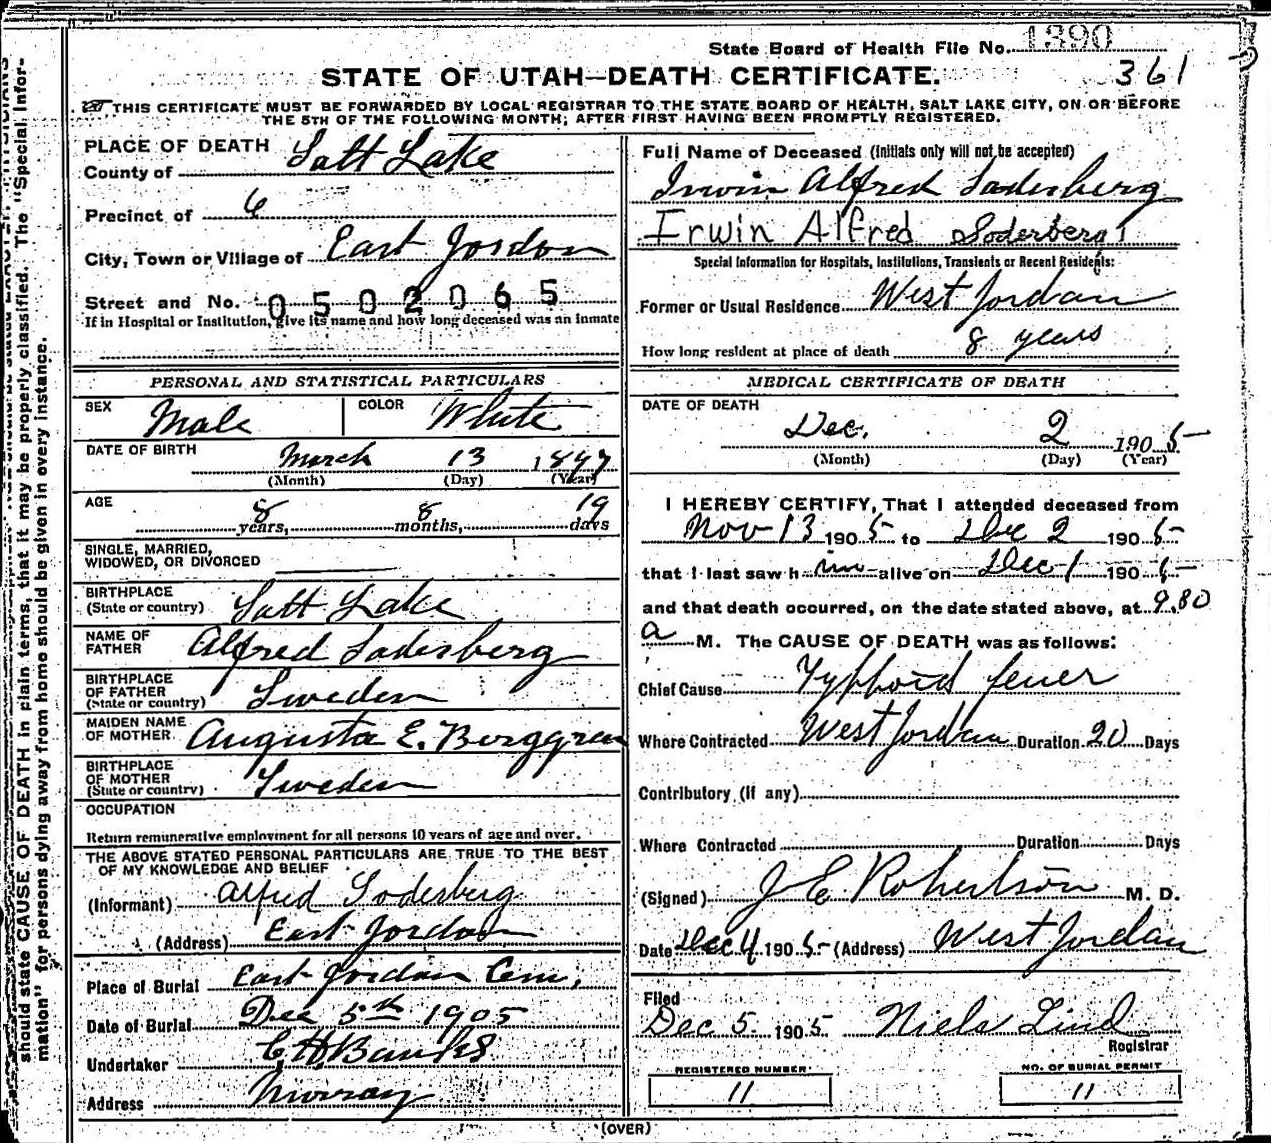 State Board of Health File No. 1390
361
STATE OF UTAH—DEATH CERTIFICATE.
THIS CERTIFICATE MUST BE FORWARDED BY LOCAL REGISTRAR TO THE STATE BOARD OF HEALTH, SALT LAKE CITY, ON OR BEFORE
THE 5TH OF THE FOLLOWING MONTH; AFTER FIRST HAVING BEEN PROMPTLY REGISTERED.
PLACE OF DEATH
County of Salt Lake
Precinct of 6
City, Town or Village of East Jordan
Street and No. 0502065
If in Hospital or Institution, give its name and how long deceased was an inmate
Full Name of Deceased (Initials only will not be accepted)
Irwin Alfred Soderberg
Irwin Alfred Soderberg
Special Information for Hospitals, Institutions, Transients or Recent Residents:
Former or Usual Residence West Jordan
How long resident at place of death 8 years
PERSONAL AND STATISTICAL PARTICULARS
SEX Male COLOR White
DATE OF BIRTH March 13 1897
(Month) (Day) (Year)
AGE 8 years, 8 months, 19 days
SINGLE, MARRIED,
WIDOWED, OR DIVORCED
BIRTHPLACE
(State or country) Salt Lake
NAME OF
FATHER Alfred Soderberg
BIRTHPLACE
OF FATHER
(State or country) Sweden
MAIDEN NAME
OF MOTHER Augusta E. Berggren
BIRTHPLACE
OF MOTHER
(State or country) Sweden
OCCUPATION
Return remunerative employment for all persons 10 years of age and over.
THE ABOVE STATED PERSONAL PARTICULARS ARE TRUE TO THE BEST
OF MY KNOWLEDGE AND BELIEF
(Informant) Alfred Soderberg
(Address) East Jordan
Place of Burial East Jordan Cem.
Date of Burial Dec 5th 1905
Undertaker C.H. Banks
Address Murray
MEDICAL CERTIFICATE OF DEATH
DATE OF DEATH
Dec. 2 1905
(Month) (Day) (Year)
I HEREBY CERTIFY, That I attended deceased from
Nov 13 1905 to Dec 2 1905
that I last saw him alive on Dec 1 1905
and that death occurred, on the date stated above, at 9.80
a M. The CAUSE OF DEATH was as follows:
Chief Cause Typhoid fever
Where Contracted West Jordan Duration 20 Days
Contributory (if any)
Where Contracted Duration Days
(Signed) J E Robertson M. D.
Date Dec 4 1905 (Address) West Jordan
Filed
Dec 5 1905 Niels Lind
Registrar
REGISTERED NUMBER
11
NO. OF BURIAL PERMIT
11
(OVER)
should state CAUSE OF DEATH in plain terms, that it may be properly classified. The "Special Infor-
mation" for persons dying away from home should be given in every instance.